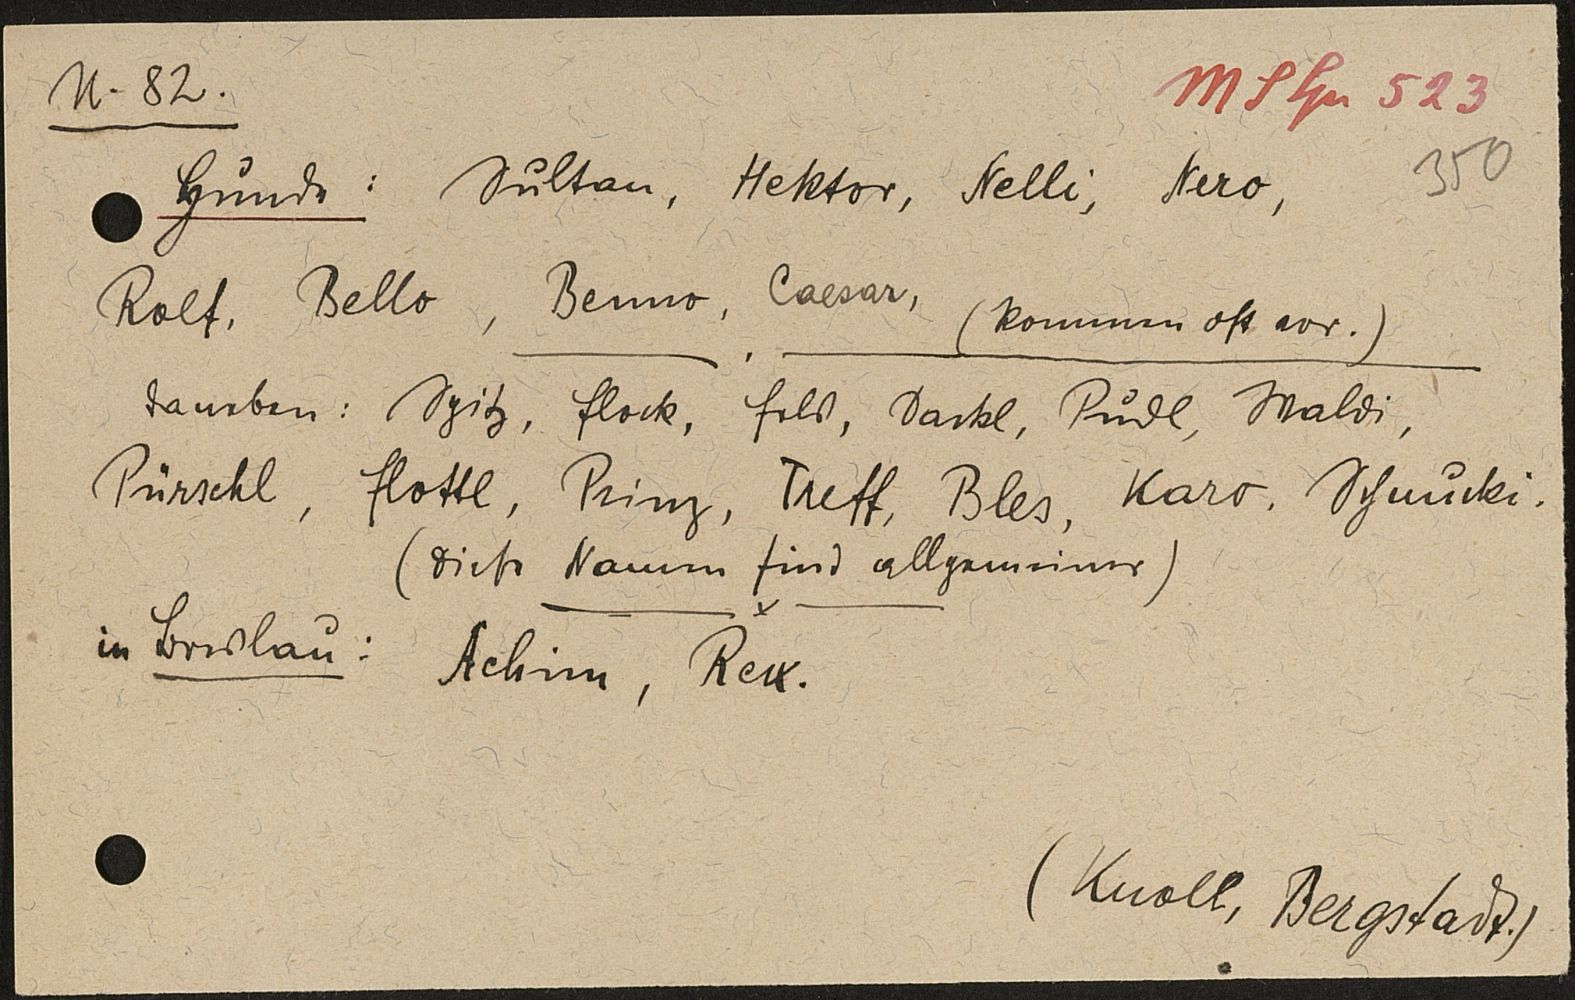 N. 82.
MSgn 523
350
Hunde: Sultan, Hektor, Nelli, Nero,
Rolf, Bello, Benno, Caesar, (kommen oft vor.)
daneben: Spitz, Flock, Feld, Dackl, Pudl, Waldi,
Pürschl, Flottl, Prinz, Treff, Bles, Karo, Schnucki.
(diese Namen sind allgemeiner)
in Breslau: Achim, Rex.
(Knoll, Bergstadt.)